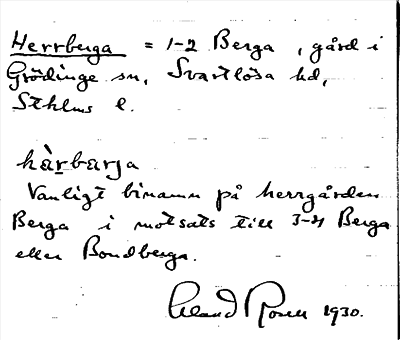 Herrberga = 1-2 Berga, gård i
Grödinge sn, Svartlösa hd,
Sthlms l.
hàrbarja
Vanligt binamn på herrgården
Berga i motsats till 3-4 Berga
eller Bondberga.
Rosén 1930.